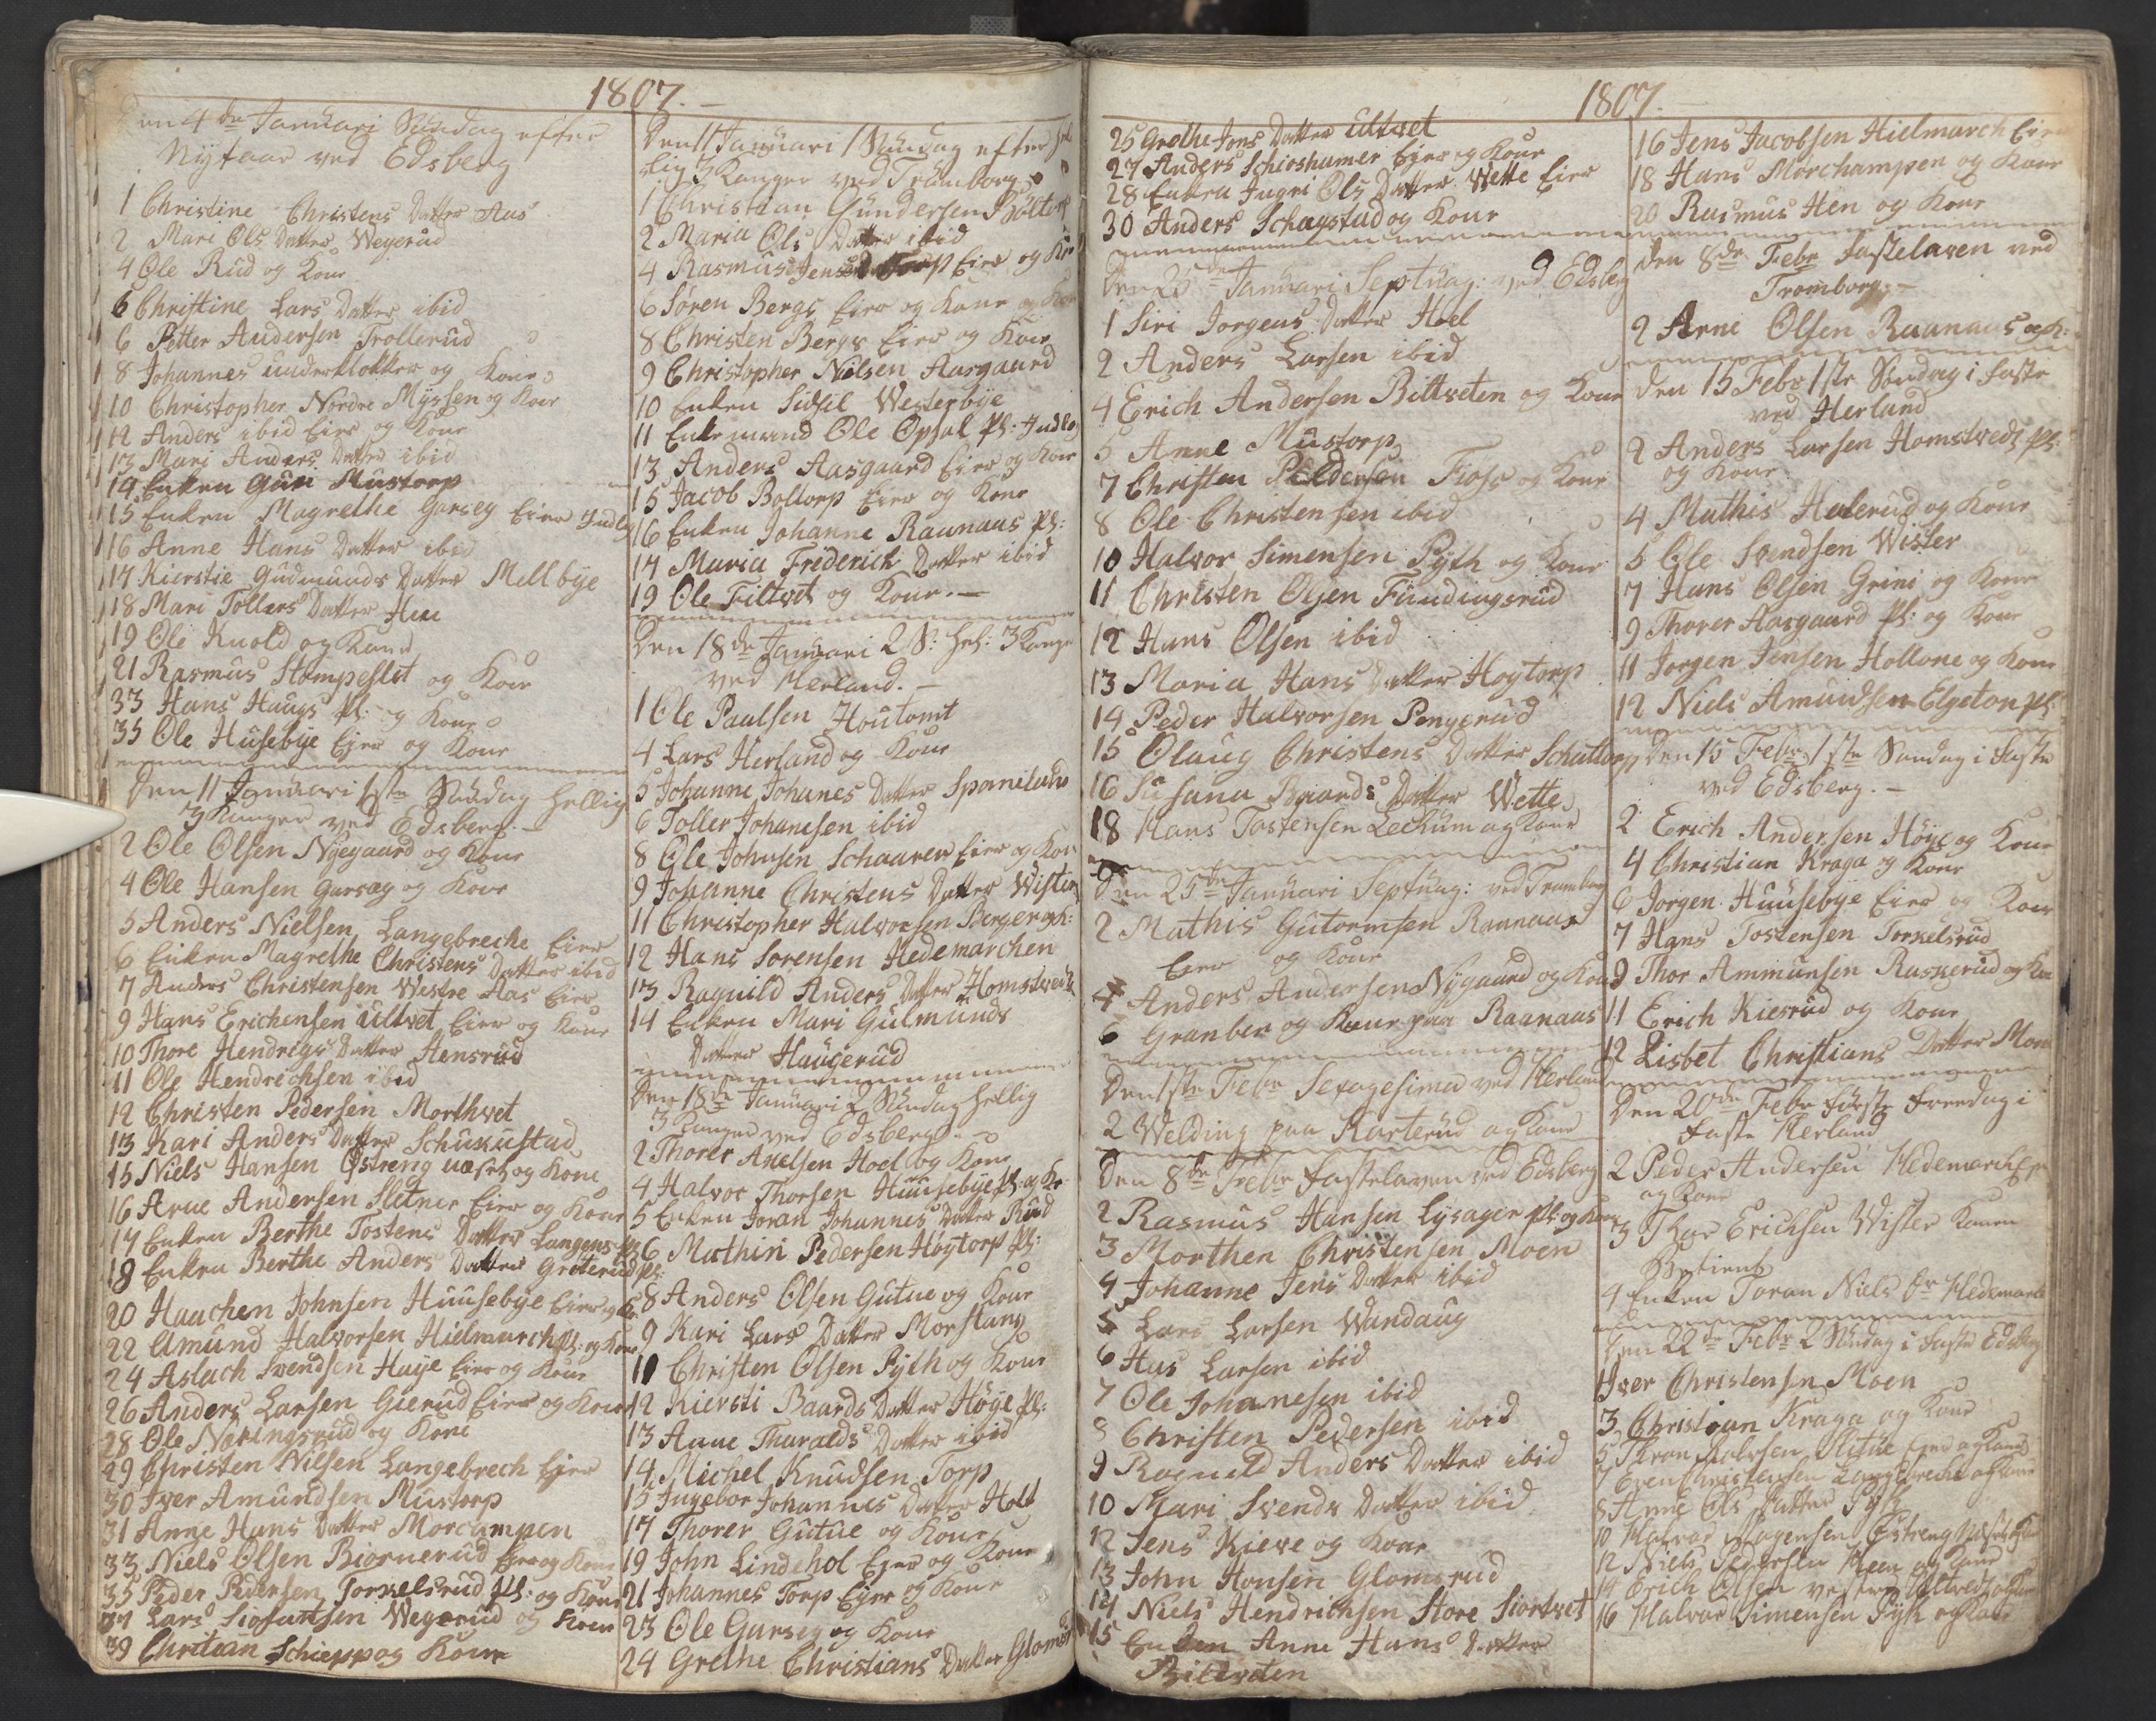 1807.
Den 4de Januari Søndag efter
Nytaar ved Edsberg
1 Christine Christens Datter Aas
2 Mari Ols Datter Wegerud
4 Ole Rud og Kone
6 Christine Lars Datter ibid
6 Petter Andersen Trollerud
8 Johannes underklokker og Kone
10 Christopher Nordre Myssen og Kone
12 Anders ibid Eier og Kone
13 Mari Anders Datter ibid
14 Enken Guri Mustorp
15 Enken Magrethe Garseg Eier Inds
16 Anne Hans Datter ibid
17 Kierstie Gudmunds Datter Mellbye
18 Mari Tollers Datter Hen
19 Ole Knold og Kone
21 Rasmus Stompeslet og Kone
33 Hans Haugs Pl: og Kone
35 Ole Husebye Eier og Kone
Den 11 Januari 1ste Søndag hellig
3 Konger ved Edsberg.
2 Ole Olsen Nyegaard og Kone
4 Ole Hansen Garseg og Kone
5 Anders Nielsen Langebreche Eier
6 Enken Magrethe Christens Datter ibid
7 Anders Christensen Westre Aas Eier
9 Hans Erichensen Ultvet Eier og Kone
10 Thore Hendrichs Datter Hensrud
11 Ole Hendrechsen ibid
12 Christen Pedersen Morthvet
13 Kari Anders Datter Schukustad
15 Niels Hansen Østreng og Kone
16 Arne Andersen Sletner Eier og Kone
17 Enken Berthe Tostens Datter Langens Pl:
18 Enken Berthe Anders Datter Greterud Pl:
20 Haachen Johnsen Huusebye Eier og K:
22 Amund Halvorsen Hielmarch Pl: og Kone
24 Aslach Svendsen Haye Eier og Kone
26 Anders Larsen Gierud Eier og Kone
28 Ole Næringsrud og Kone
29 Christen Nilsen Langebrech Eier
30 Iver Amundsen Mustorp
31 Anne Hans Datter Morcampen
33 Niels Olsen Biørnerud Eier og Kone
35 Peder Pedersen Torkelsrud Pl: og Kone
37 Lars Wegerud og Kone
39 Christian Schiepp og Kone
Den 11 Januari 1 Søndag efter hel
lig 3 Konger ved Trømborg
1 Christian Gundersen Boltorp
2 Maria Ols Datter ibid
4 Rasmus Jensen Torp Eier og Kone
6 Søren Bergs Eier og Kone
8 Christen Bergs Eier og Kone
9 Christopher Nielsen Aasgaard
10 Enken Sidsel Westerbye
11 Enkemand Ole Opsal Pl: Inds
13 Anders Aasgaard Eier og Kone
15 Jacob Boltorp Eier og Kone
16 Enken Johanne Raanaas Pl:
17 Maria Friderich Datter ibid
19 Ole Filtvet og Kone.
Den 18de Januari 2 S: Hel: 3 Konge
ved Herland.
1 Ole Paulsen Houtomt
4 Lars Herland og Kone
5 Johanne Johanes Datter Sponelund
6 Toller Johanesen ibid
8 Ole Johnsen Schaaren Eier og Kone
9 Johanne Christens Datter Wister
11 Christopher Halvorsen Berger og K:
12 Hans Sorensen Hedemarchen
13 Ragnild Anders Datter Homstvedt
14 Enken Mari Gulmunds
Datter Haugerud
Den 18de Januari 2 Søndag hellig
3 Konger ved Edsberg.
2 Thorer Axelsen Hoel og Kone
4 Halvor Thorsen Huusebye Pl: og K:
5 Enken Joran Johannes Datter Rud
6 Mathis Pedersen Høytorp Pl:
8 Anders Olsen Gutue og Kone
9 Kari Lars Datter Morstang
11 Christen Olsen Fyth og Kone
12 Kiersti Baards Datter Høye Pl:
13 Anne Thoralds Datter ibid
14 Michel Knudsen Torp
15 Ingebor Johannes Datter Holt
17 Thorer Gutue og Kone
19 John Lindehol Eier og Kone
21 Johannes Torp Eier og Kone
23 Ole Garseg og Kone
24 Grethe Christians Datter Glomsr
1807.
25 Grethe Jens Datter Ultvet
27 Anders Schioshamer Eier og Kone
28 Enken Ingri Ols Datter Wette Eier
30 Anders Schagstad og Kone
Den 25de Januari Septuag: ved Edsberg
1 Siri Jorgens Datter Hoel
2 Anders Larsen ibid
4 Erich Andersen Bittveten og Kone
5 Anne Mustorp
7 Christen Peldersen Fiøss og Kone
8 Ole Christensen ibid
10 Halvor Simensen Pyth og Kone
11 Christen Olsen Fundingsrud
12 Hans Olsen ibid
13 Maria Hans Datter Hoytorp
14 Peder Halvorsen Pengerud
15 Olaug Christens Datter Schattorp
16 Susana Baards Datter Wette
18 Hans Tostensen Leckum og Kone
Den 25de Januari Septuag: ved Tromborg
2 Mathis Gutormsen Raanaas
Eier og Kone
4 Anders Andersen Nygaard og Kone
6 Granber og Kone paa Raanaas
Den 1ste Febr Sexagesima ved Herland
2 Welding paa Karterud og Kone
Den 8de Febr Fastelaven ved Edsberg
2 Rasmus Hansen Lysager Pl: og Kone
3 Morthen Christensen Moen
4 Johanne Jens Datter ibid
5 Lars Larsen Wandaug
6 Has Larsen ibid
7 Ole Johanesen ibid
8 Christen Pedersen ibid
9 Ragnild Anders Datter ibid
10 Mari Svends Datter ibid
12 Jens Kieve og Kone
13 John Hansen Glomsrud
14 Niels Hendrichsen Store Siortvet
15 Enken Anne Hans Datter
Bitveten
16 Jens Jacobsen Hielmarch Eier
18 Hans Mørchampen og Kone
20 Rasmus Hen og Kone
Den 8de Febr Fastelaven ved
Tromborg.
2 Arne Olsen Raanaas og K:
Den 15 Febr 1ste Søndag i Faste
ved Herland
2 Anders Larsen Homstvedt Pl:
og Kone.
4 Mathis Halerud og Kone
5 Ole Svendsen Wister
7 Hans Olsen Grini og Kone
9 Thorer Aasgaard Pl: og Kone
11 Jorgen Jensen Hollone og Kone
12 Niels Amundsen Elgeton Pl:
Den 15 Febr 1ste Søndag i Faste
ved Edsberg.
2 Erich Andersen Høye og Kone
4 Christian Kraga og Kone
6 Jorgen Huusebye Eier og Kone
7 Hans Tostensen Torkelsrud
9 Thor Ammunsen Raskerud og Kone
11 Erich Kiesrud og Kone
12 Lisbet Christians Datter Moen
Den 20de Febr første Freedag i
Faste Herland
2 Peder Andersen Hedemarch
og Kone
3 Thor Erichsen Wister Konen
4 Enken Joran Niels Dr Hedemark
Den 22de Febr 2 Søndag i Faste Edsberg
1 Iver Christensen Moen
3 Christian Kraga og Kone
5 Halvorsen Slitue Eier og Kone
7 Even Christensen Langebreche og Kone
8 Anne Ols Datter Pyth
10 Halvor Østreng og Kone
12 Niels Pedersen Heen og Kone
14 Erich Olsen vestre Ultvedt og Kone
16 Halvor Simensen Pyth og Kone